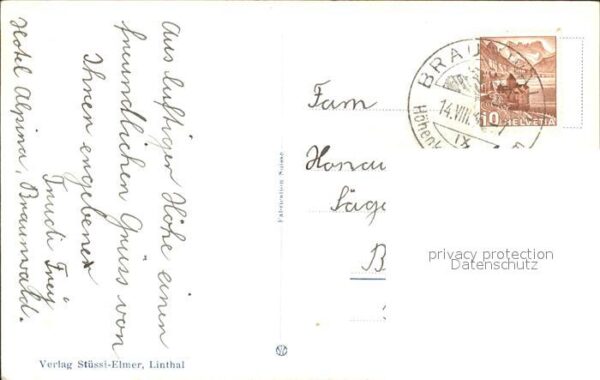 Aus luftiger Höhe einen
freundlichen Gruss von
Ihrer ergebenen
Trudi Frey
Hotel Alpina, Braunwald.
Verlag Stüssi-Elmer, Linthal
Fabrication Suisse
Fam
Honau
Säge
B
BRAU
14.VIII.
IX
Höhenk
10 HELVETIA
privacy protection
Datenschutz